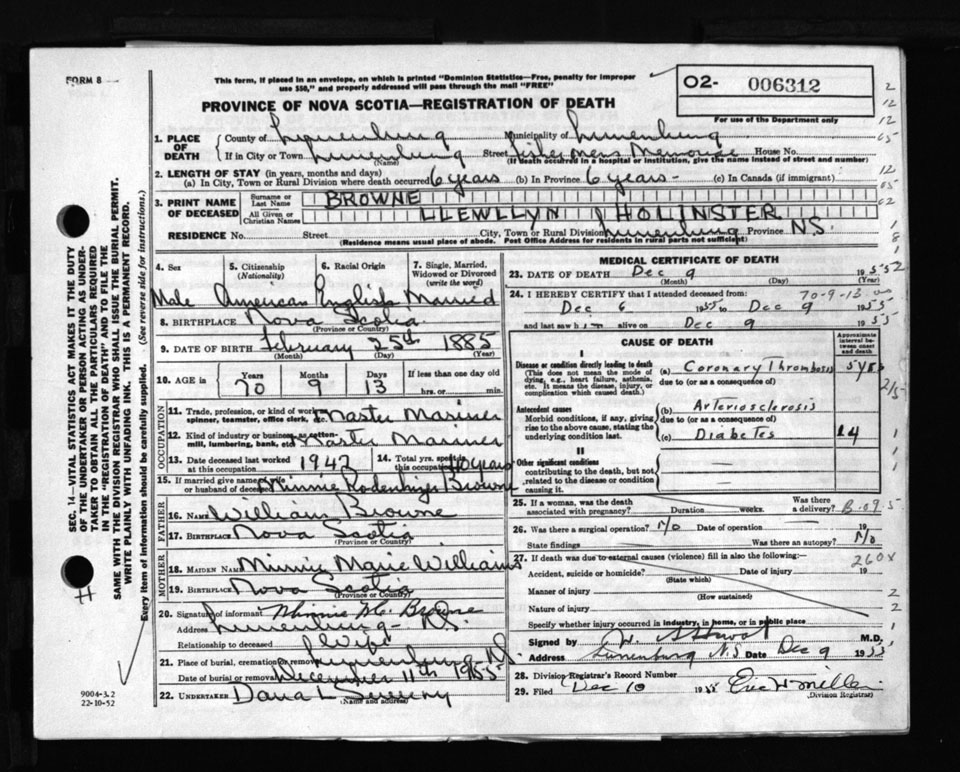 FORM 8
This form, if placed in an envelope, on which is printed "Dominion Statistics—Free, penalty for improper
use $50," and properly addressed will pass through the mail "FREE"
O2- 006312
For use of the Department only
PROVINCE OF NOVA SCOTIA—REGISTRATION OF DEATH
1. PLACE OF DEATH
County of Lunenburg Municipality of Lunenburg
If in City or Town Lunenburg Street Fishermens Memorial House No.
(Name) (If death occurred in a hospital or institution, give the name instead of street and number)
2. LENGTH OF STAY (in years, months and days)
(a) In City, Town or Rural Division where death occurred 6 years (b) In Province 6 years - (c) In Canada (if immigrant)
3. PRINT NAME OF DECEASED
Surname or Last Name BROWNE
All Given or Christian Names LLEWLLYN HOLINSTER
RESIDENCE No. Street City, Town or Rural Division Lunenburg Province N.S.
(Residence means usual place of abode. Post Office Address for residents in rural parts not sufficient)
4. Sex
5. Citizenship (Nationality)
6. Racial Origin
7. Single, Married, Widowed or Divorced (write the word)
Male American English Married
8. BIRTHPLACE Nova Scotia
(Province or Country)
9. DATE OF BIRTH February 25th 1885
(Month) (Day) (Year)
10. AGE in Years Months Days If less than one day old
70 9 13 hrs. or min.
OCCUPATION
11. Trade, profession, or kind of work as spinner, teamster, office clerk, etc. Master Mariner
12. Kind of industry or business, as cotton-mill, lumbering, bank, etc. Master Mariner
13. Date deceased last worked at this occupation 1942
14. Total yrs. spent in this occupation 40 years
15. If married give name of wife or husband of deceased Minnie Rodenhizer Browne
FATHER
16. NAME William Browne
17. BIRTHPLACE Nova Scotia
(Province or Country)
MOTHER
18. MAIDEN NAME Minnie Marie Williams
19. BIRTHPLACE Nova Scotia
(Province or Country)
20. Signature of informant Minnie M. Browne
Address Lunenburg - N.S.
Relationship to deceased Wife
21. Place of burial, cremation or removal Lunenburg N
Date of burial or removal December 11th 1955
22. UNDERTAKER Dana L Sweeny
(Name and address)
MEDICAL CERTIFICATE OF DEATH
23. DATE OF DEATH Dec 9 1955
(Month) (Day) (Year)
24. I HEREBY CERTIFY that I attended deceased from: 70-9-13
Dec 6 1955 to Dec 9 1955
and last saw him alive on Dec 9 1955
CAUSE OF DEATH
Approximate interval between onset and death
I
Disease or condition directly leading to death
(This does not mean the mode of dying, e.g., heart failure, asthenia, etc. It means the disease, injury, or complication which caused death.)
(a) Coronary Thrombosis 5 yrs
due to (or as a consequence of)
Antecedent causes
Morbid conditions, if any, giving rise to the above cause, stating the underlying condition last.
(b) Arteriosclerosis
due to (or as a consequence of)
(c) Diabetes 14
II
Other significant conditions
contributing to the death, but not related to the disease or condition causing it.
25. If a woman, was the death associated with pregnancy? Duration weeks. Was there a delivery?
26. Was there a surgical operation? No Date of operation 19
State findings Was there an autopsy? No
27. If death was due to external causes (violence) fill in also the following:— 260x
Accident, suicide or homicide? Date of injury 19
(State which)
Manner of injury
(How sustained)
Nature of injury
Specify whether injury occurred in industry, in home, or in public place
Signed by M.D.
Address Lunenburg N.S Date Dec 9 1955
28. Division Registrar's Record Number
29. Filed Dec 10 1955 Eric H Miller
(Division Registrar)
SEC. 14—VITAL STATISTICS ACT MAKES IT THE DUTY
OF THE UNDERTAKER OR PERSON ACTING AS UNDERTAKER
TO OBTAIN ALL THE PARTICULARS REQUIRED
IN THE "REGISTRATION OF DEATH" AND TO FILE THE
SAME WITH THE DIVISION REGISTRAR WHO SHALL ISSUE THE BURIAL PERMIT.
WRITE PLAINLY WITH UNFADING INK. THIS IS A PERMANENT RECORD.
Every item of information should be carefully supplied. (See reverse side for instructions.)
H
9004-3.2
22-10-52